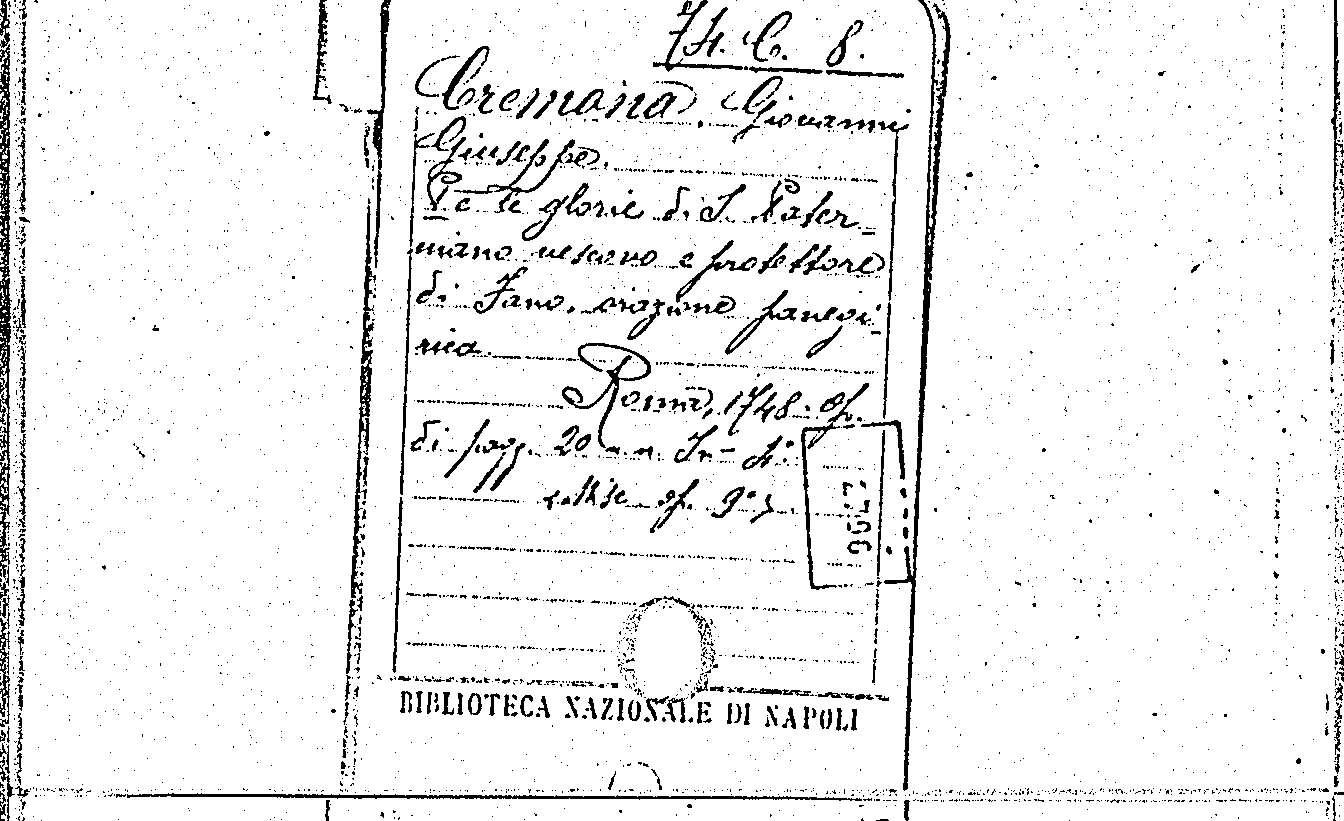 74. C. 8.
Cremona, Giovanni
Giuseppe.
Pe le glorie di S. Pater=
niano vescovo e protettore
di Fano, orazione panegi-
rica.
Roma, 1748. op.
di pagg. 20 In- 4.°
op. 9°
BIBLIOTECA NAZIONALE DI NAPOLI